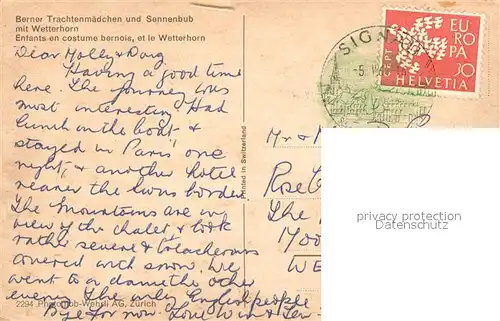 Berner Trachtenmädchen und Sennenbub
mit Wetterhorn
Enfants en costume bernois, et le Wetterhorn
Dear Molly & Doug
Having a good time
here. The journey was
most interesting Had
lunch on the boat &
stayed in Paris one
night, & another hotel
nearer the Swiss border
The mountains are in
view of the chalet & look
rather severe & treacherous
covered with snow. We
went to a the other
evening The only English people
Bye for now. Love Win & Len
2294 Photoglob-Wehrli AG, Zürich
Printed in Switzerland
EUROPA
30
HELVETIA
SEPT
Mr &
Rose
The
Moo
WE
privacy protection
Datenschutz